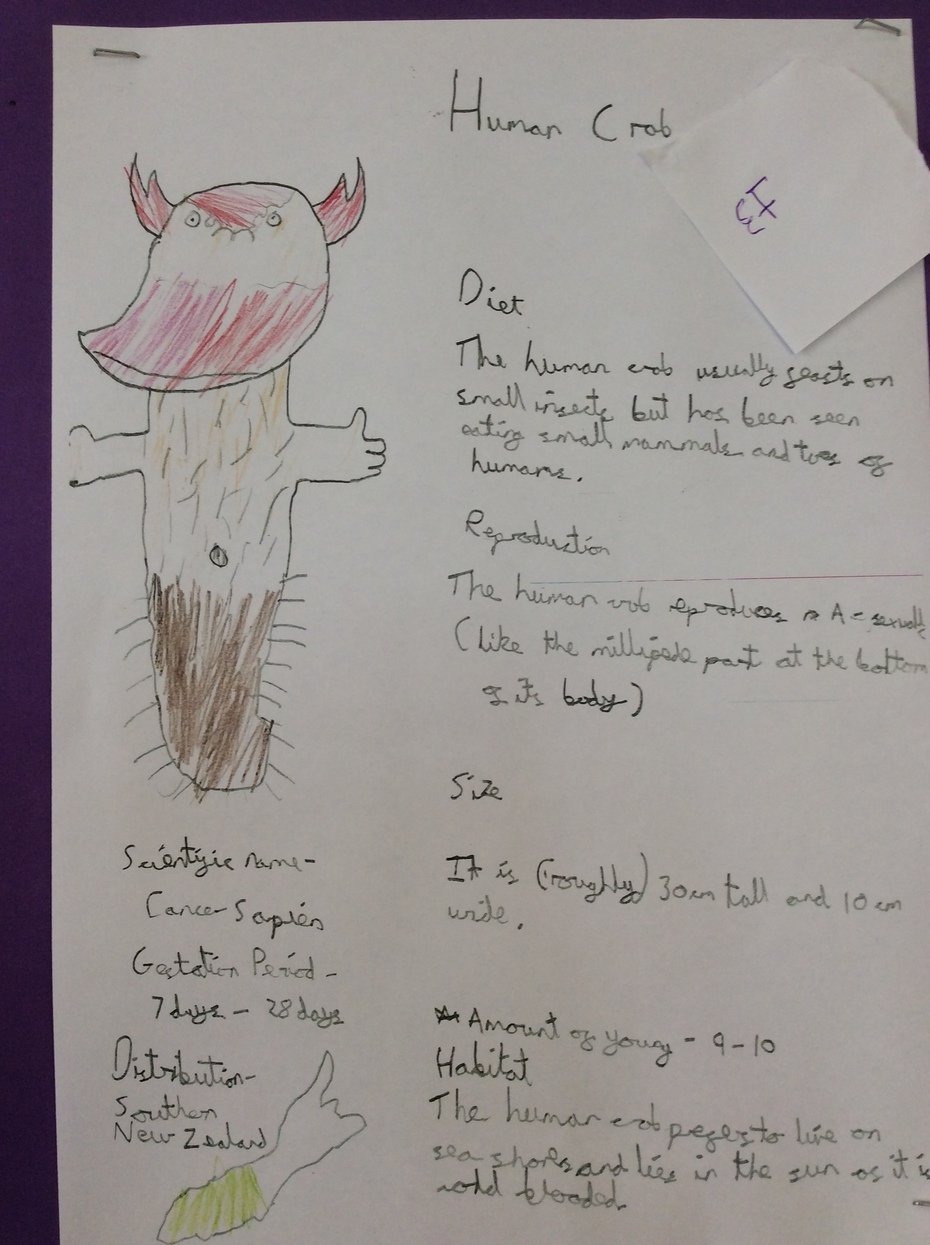 Human Crab
I3
Diet
The human crab usually feasts on
small insects but has been seen
eating small mammals and toes of
humans.
Reproduction
The human crab reproduces A-sexually
(like the millipede part at the bottom
of its body)
Size
It is (roughly) 30cm tall and 10cm
wide.
Amount of young - 9-10
Habitat
The human crab prefers to live on
sea shores and lies in the sun as it is
cold blooded.
Scientific name-
Cancer Sapien
Gestation Period -
7days - 28days
Distribution-
Southern
New Zealand